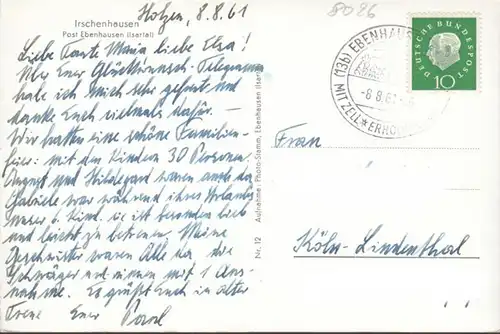 Irschenhausen
Post Ebenhausen (Isartal)
Holzen, 8.8.61
8026
Liebe Tante Maria liebe Elsa!
Über Euer Glückwunsch-Telegramm
habe ich mich sehr gefreut und
danke Euch vielmals dafür. –
Wir hatten eine schöne Familien-
feier: mit den Kindern 30 Personen.
August und Hildegard waren auch da
Gabriele war während ihres Urlaubs
unser 6. Kind. Sie ist besonders lieb
und leicht zu betreuen. Meine
Geschwister waren Alle da, die
Schwäger und innen mit 1 Aus-
nahme. Es grüßt Euch in alter
Treue Euer Paul
Nr. 12 Aufnahme: Photo-Stamm, Ebenhausen (Isartal)
(13b) EBENHAUSEN
-8.8.61
MIT ZELL
DEUTSCHE BUNDESPOST
10
Frau
Köln-Lindenthal